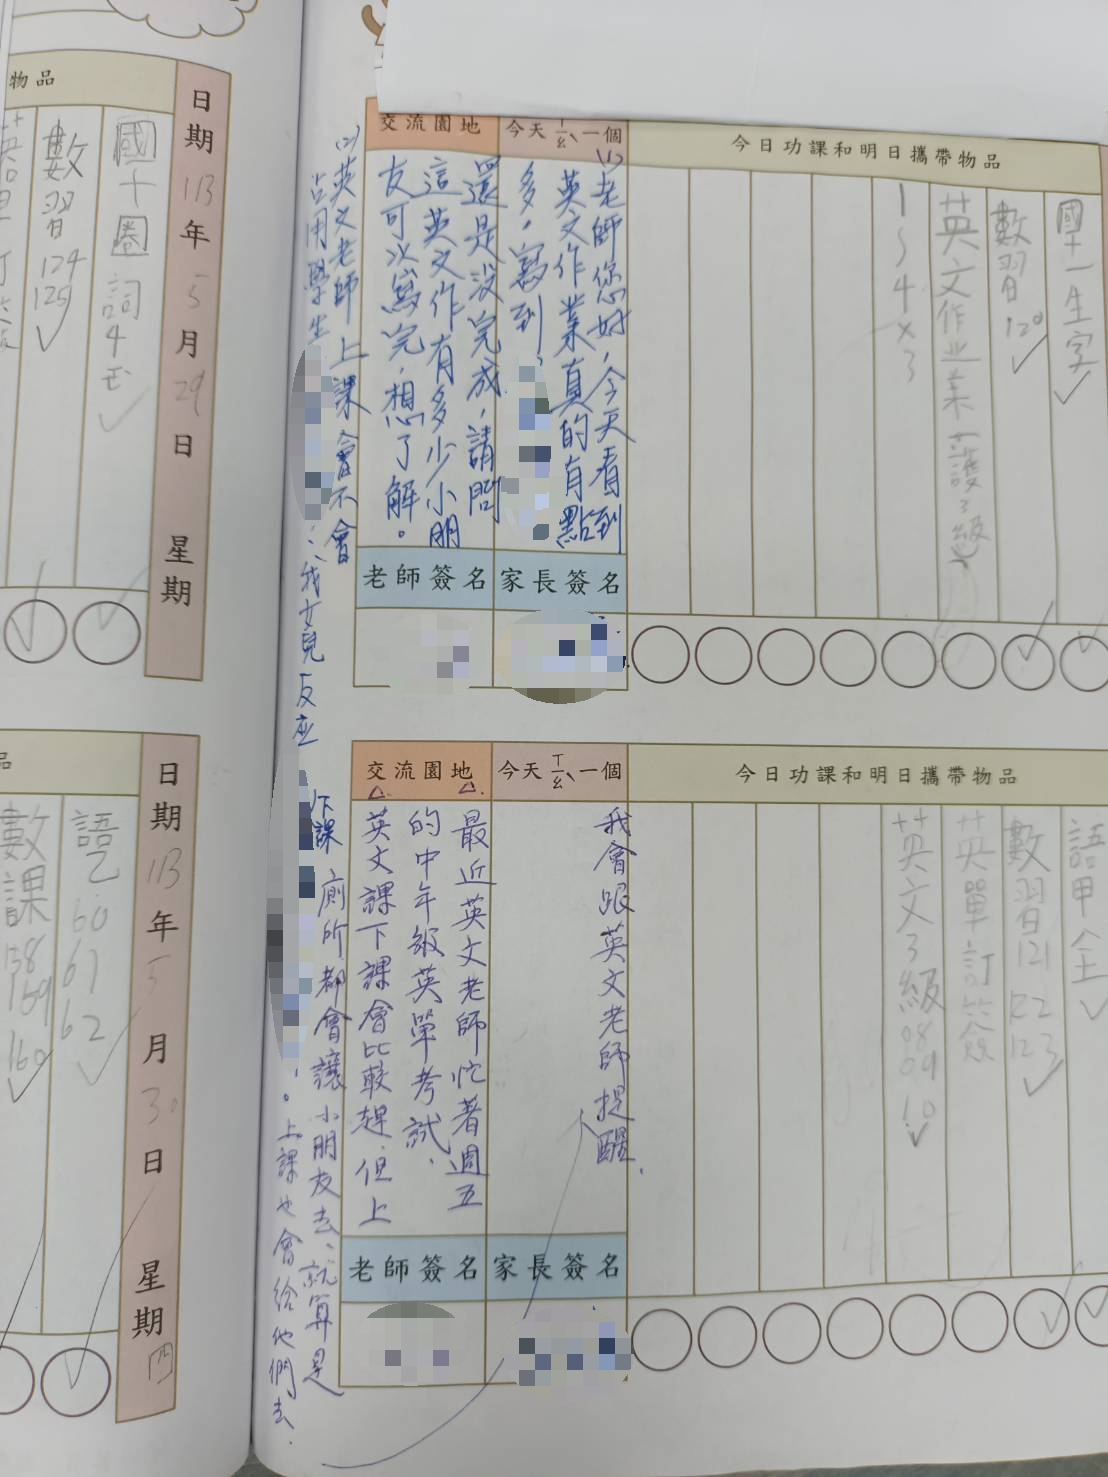 今日功課和明日攜帶物品
國十一生字
數習120
英文作業
護3級
1~4×3
今天ㄒㄧㄠˋ一個
交流園地
(1)老師您好,今天看到
英文作業真的有點
多,寫到
還是沒完成,請問
這英文作有多少小朋
友可以寫完,想了解。
(2)英文老師上課會不會
占用學生
我女兒反應
家長簽名
老師簽名
今日功課和明日攜帶物品
語甲全
數習121
122
123
英單訂簽
英文3級08
09
10
今天ㄒㄧㄠˋ一個
交流園地
我會跟英文老師提醒、
最近英文老師忙著週五
的中年級英單考試、
英文課下課會比較趕、但上
下課廁所都會讓小朋友去、就算是
上課也會給他們去、
家長簽名
老師簽名
物品
日期113年5月29日 星期
國十圈詞4
數習
124
125
日期113年5月30日 星期四
品
語乙
60
61
62
數課
158
159
160